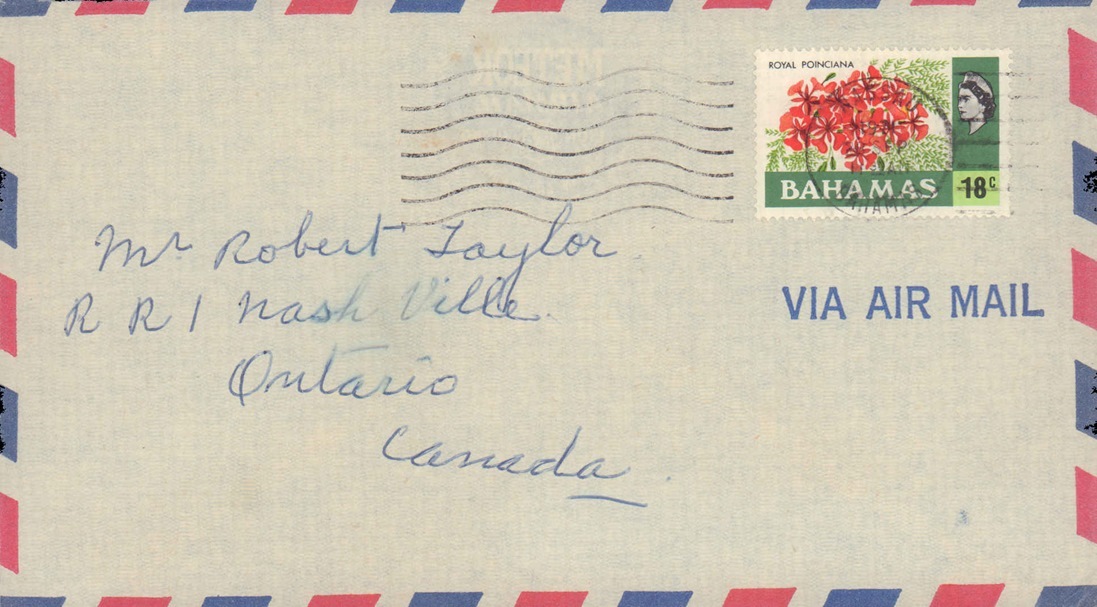 ROYAL POINCIANA
BAHAMAS 18c
Mr Robert Taylor
R R 1 Nash Ville
VIA AIR MAIL
Ontario
Canada